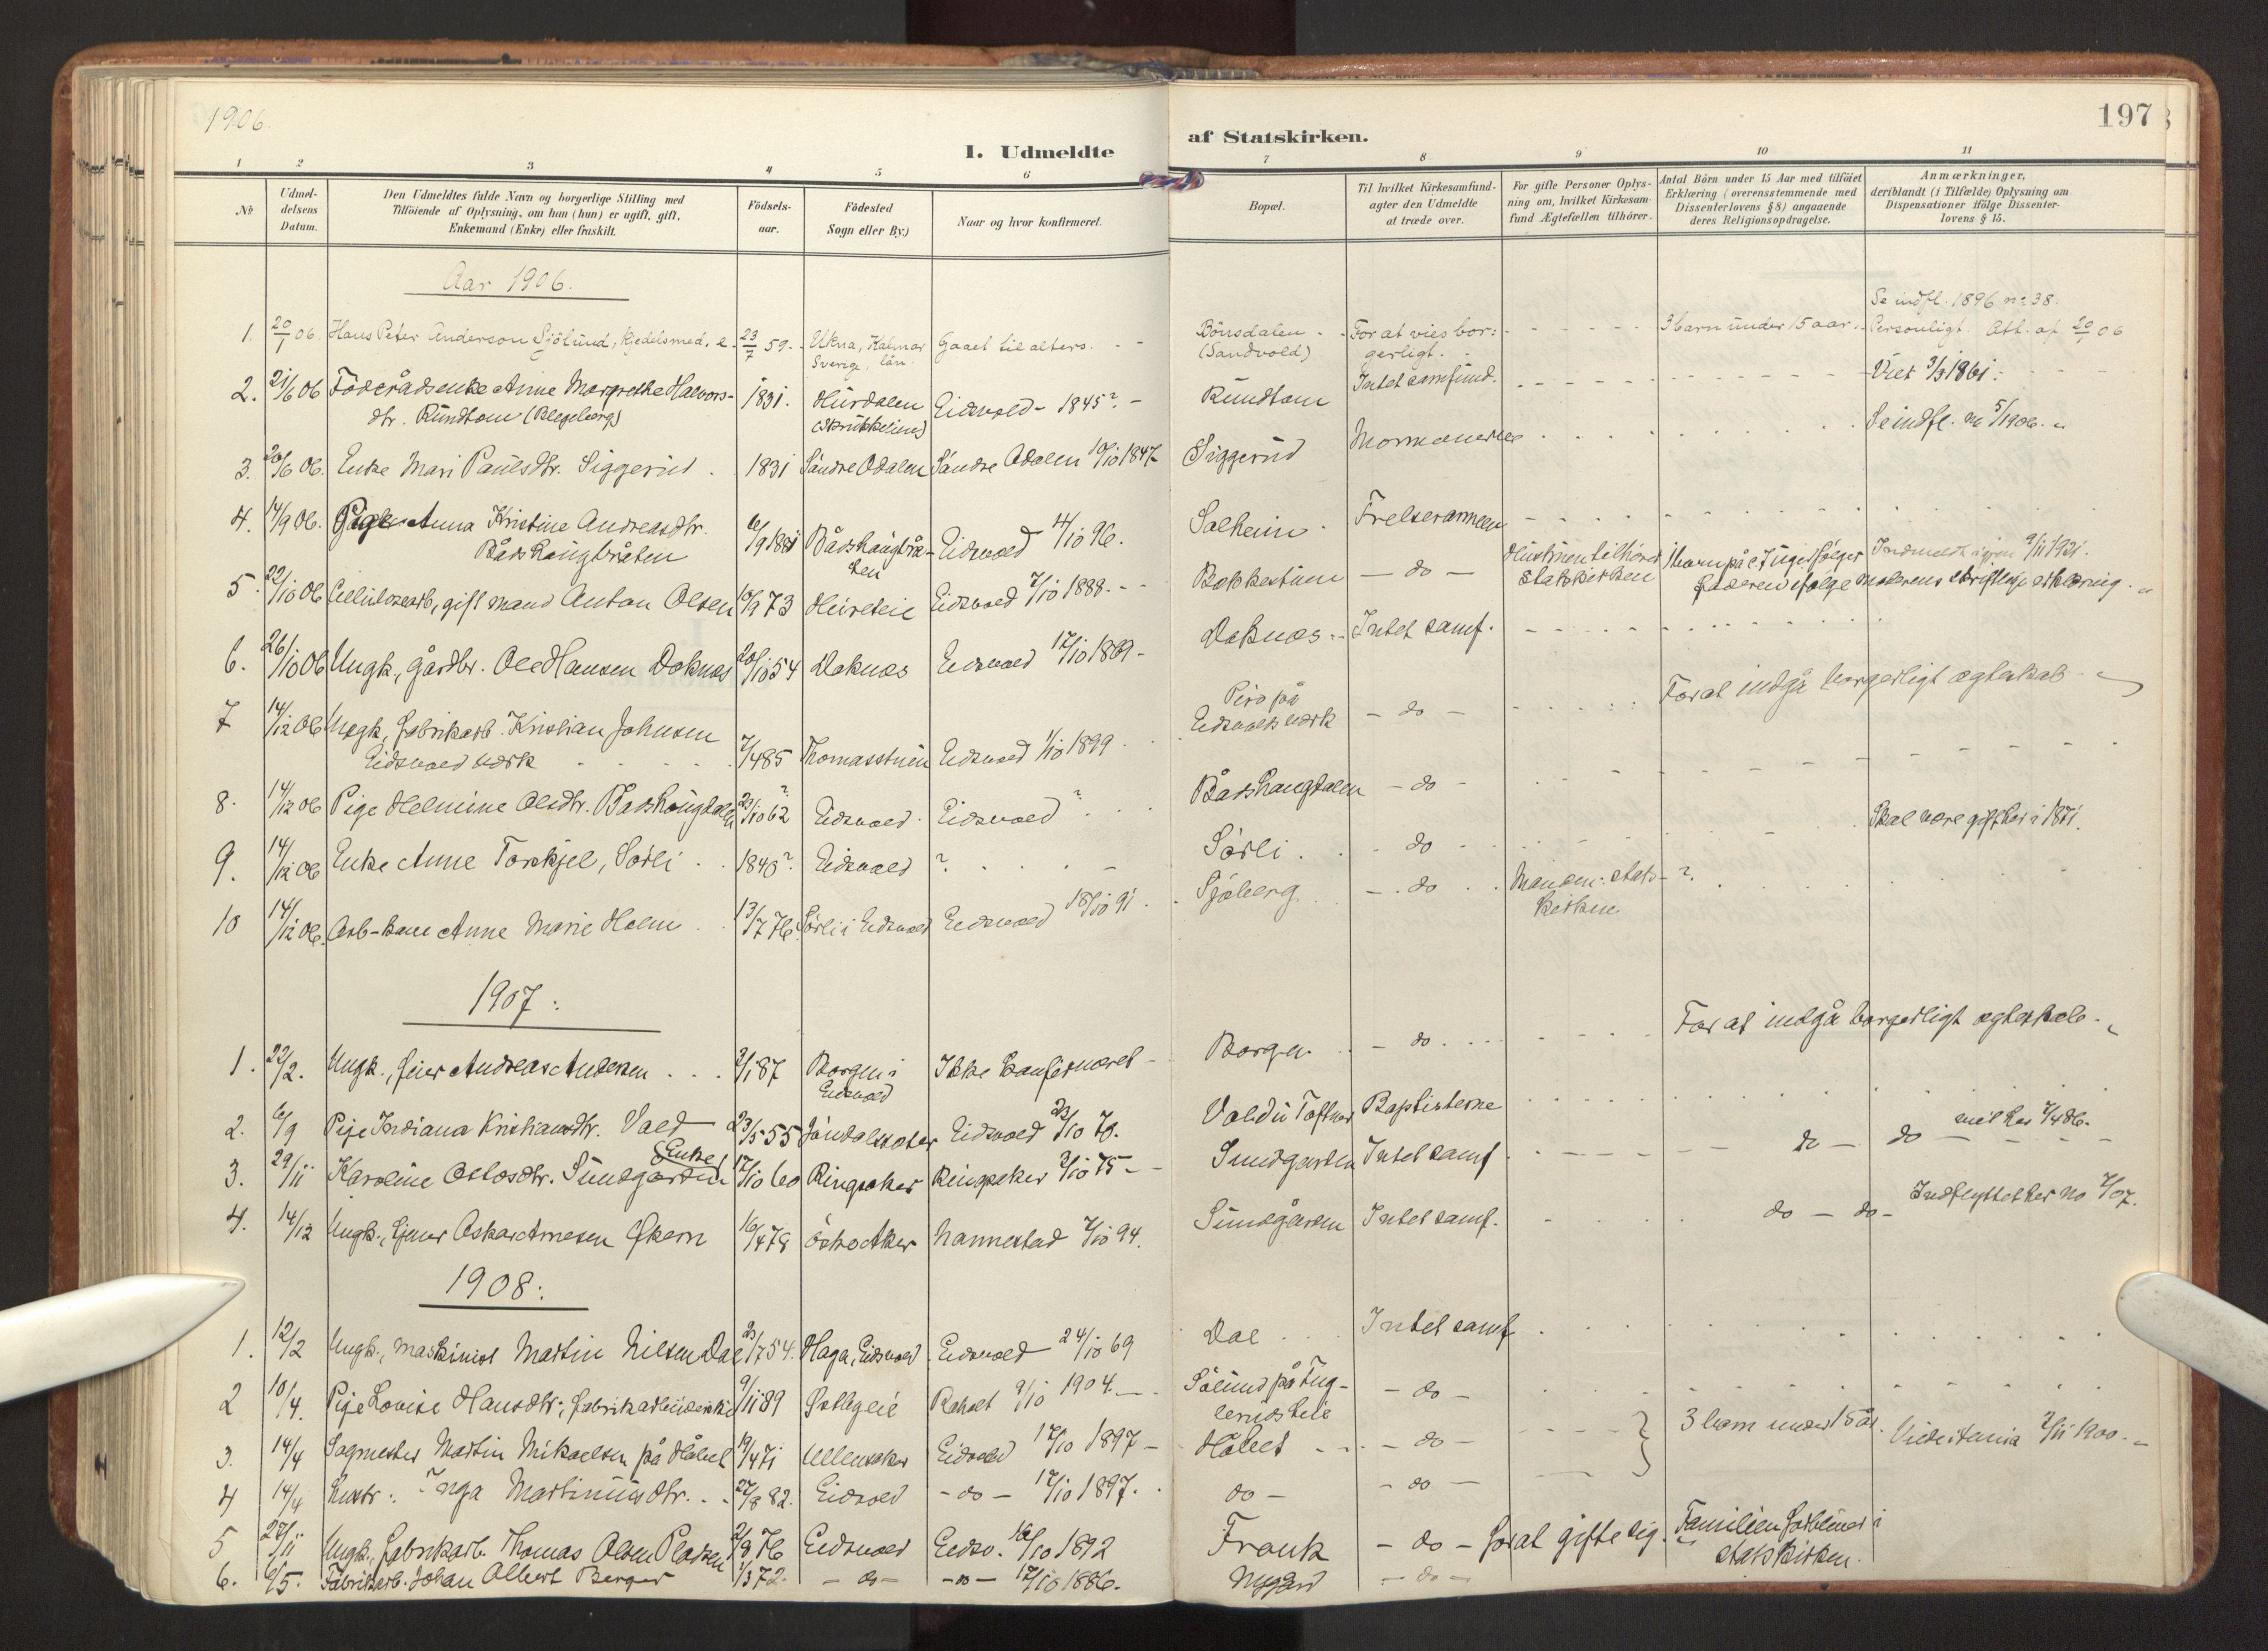 1906.
197
I. Udmeldte af Statskirken.
1 2 3 4 5 6 7 8 9 10 11
No
Udmeldelsens Datum.
Den Udmeldtes fulde Navn og borgerlige Stilling med Tilföiende af Oplysning, om han (hun) er ugift, gift, Enkemand (Enke) eller fraskilt.
Födselsaar.
Födested Sogn eller By.)
Naar og hvor konfirmeret.
Bopæl.
Til hvilket Kirkesamfund agter den Udmeldte at træde over.
For gifte Personer Oplysning om, hvilket Kirkesamfund Ægtefællen tilhörer.
Antal Börn under 15 Aar med tilföiet Erklæring (overensstemmende med Dissenterlovens § 8) angaaende deres Religionsopdragelse.
Anmærkninger, deriblandt (i Tilfælde) Oplysning om Dispensationer ifölge Dissenterlovens § 15.
Aar 1906.
1. 20/1 06. Hans Peter Anderson Sjölund, Kjedelsmed, e. 23/7 59. Ukna, Kalmar län Sverige, Gaaet til alters. Bönsdalen (Sandvold) For at vies borgerligt. 3 barn under 15 aar. Se indfl. 1896 no 38. Personligt. Att. af 20/1 06
2. 21/6 06 Föderådsenke Anne Margrethe Halvorsdtr. Rundtom 1831. Hurdalen Eidsvold 1845? Rundtom Intet samfund. Viet 3/3 1861.
3. 20/6 06. Enke Mari Paulsdtr. Siggerud. 1831 Söndre Odalen Söndre Odalen 10/10 1847 Siggerud Mormonerne Se indfl. no 5/1906.
4. 14/9 06. Pige Anna Kristine Andreasdtr. Bådshaugbråten 6/9 1881 Bådshaugbråten Eidsvold 4/10 96. Solheim Frelserarmeen
5. 22/10 06 Cellulosearb, gift mand Anton Olsen 10/9 73 Eidsvold 7/10 1888. Bokkestuen - do - Hustruen tilhörer Statskirken Indmeldt igjen 9/11 1921. faderen ifölge moderens skriftlige erklæring.
6. 26/10 06 Ungk, gårdbr. Ole Hansen Doknes 20/10 54 Doknes Eidsvold 17/10 1869 Doknes Intet samf.
7 14/12 06 Ungk, fabrikarb. Kristian Johnsen Eidsvold værk 7/4 85 Thomasstuen Eidsvold 1/10 1899 Piro på Eidsvolds værk - do - For at indgå borgerligt ægteskab
8. 14/12 06 Pige Helmine Olsdtr. Bådshaugdalen 23/10 62? Eidsvold Eidsvold? Bådshaugdalen - do -
9. 14/12 06 Enke Anne Torkjel, Sörli 1840? Eidsvold ? Sörli. do Skal være gift her i 1871.
10 14/12 06. Arb-kone Anne Marie Holm 13/7 76 Sörli i Eidsvold Eidsvold 18/10 91. Sjöberg do Manden: statskirken ?.
1907:
1. 22/2. Ungk., feier Andreas Andersen 3/1 87 Borgen i Eidsvold Ikke konfirmeret Borgen - do - For at indgå borgerligt ægteskab.
2. 6/9 Pige Indiana Kristiansdtr. Vold 23/5 55 Eidsvold 23/10 70. Baptisterne
3. 29/11 Karoline Ottosdtr. Sundgarden Enke 17/10 60 Ringsaker Ringsaker 3/10 75 Sundgarden Intet samf do - do
4. 14/12 Ungk., Oskar Arnesen Økern 16/4 78 Östre Aker Nannestad 7/10 94. Sundgården Intet samf. do - do - Indflyttet her no 7/07.
1908:
1. 12/2 Ungk., maskinist Martin Nilsen Dal 23/1 54. Haga, Eidsvold Eidsvold 24/10 69 Dal Intet samf
2 10/4. Pige Lovise Hansdtr., fabrikarbeiderske 9/11 89 Råholt 9/10 1904. Sölund på - do -
3. 14/4 Sagmester Martin Mikaelsen på Håbet 19/4 71 Ullensaker Eidsvold 17/10 1897 Håbet - do - 3 barn under 15 år. Viede 2/11 1900.
4 14/4 Hustr.: Inga Martiniusdtr. 27/8 82. Eidsvold - do - 17/10 1897. do - - do -
5 27/11 Ungk., fabrikarb. Thomas Olsen Pladsen 2/8 76 Eidsvold Eidsv. 16/10 1892 Frank - do - for at gifte sig. Familien forbliver i statskirken.
6. 6/5. Fabrikarb. Johan Albert Berger 1/3 72. - do - - do - 17/10 1886. Nygård - do -